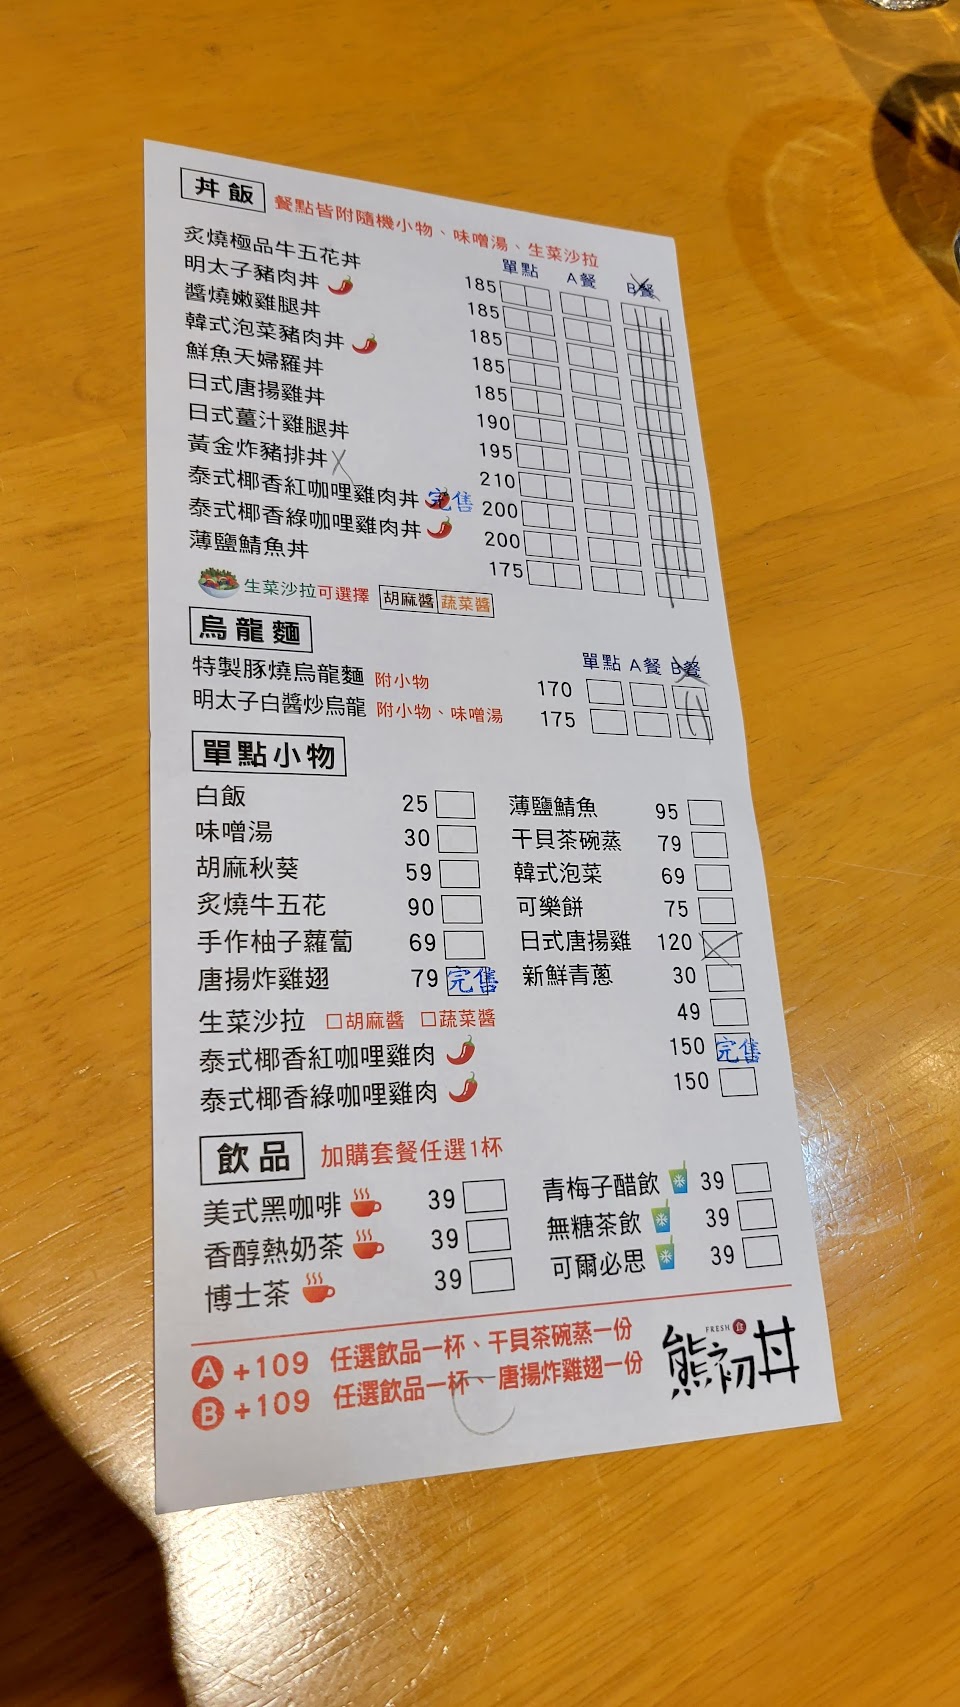 丼飯 餐點皆附隨機小物、味噌湯、生菜沙拉
單點 A餐 B餐
炙燒極品牛五花丼 185
明太子豬肉丼 185
醬燒嫩雞腿丼 185
韓式泡菜豬肉丼 185
鮮魚天婦羅丼 185
日式唐揚雞丼 190
日式薑汁雞腿丼 195
黃金炸豬排丼 210
泰式椰香紅咖哩雞肉丼 完售 200
泰式椰香綠咖哩雞肉丼 200
薄鹽鯖魚丼 175
生菜沙拉可選擇 胡麻醬 蔬菜醬
烏龍麵 單點 A餐 B餐
特製豚燒烏龍麵 附小物 170
明太子白醬炒烏龍 附小物、味噌湯 175
單點小物
白飯 25 薄鹽鯖魚 95
味噌湯 30 干貝茶碗蒸 79
胡麻秋葵 59 韓式泡菜 69
炙燒牛五花 90 可樂餅 75
手作柚子蘿蔔 69 日式唐揚雞 120
唐揚炸雞翅 79 完售 新鮮青蔥 30
生菜沙拉 □胡麻醬 □蔬菜醬 49
泰式椰香紅咖哩雞肉 150 完售
泰式椰香綠咖哩雞肉 150
飲品 加購套餐任選1杯
美式黑咖啡 39 青梅子醋飲 39
香醇熱奶茶 39 無糖茶飲 39
博士茶 39 可爾必思 39
A +109 任選飲品一杯、干貝茶碗蒸一份
B +109 任選飲品一杯、唐揚炸雞翅一份
FRESH
熊初丼